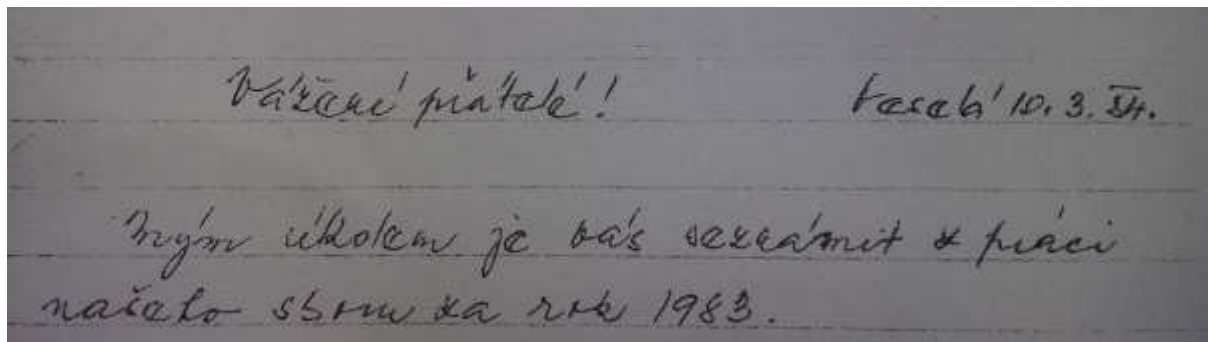 Vážení přátelé! Veselá 10. 3. 84.
Mým úkolem je vás seznámit z práci
našeho sboru za rok 1983.